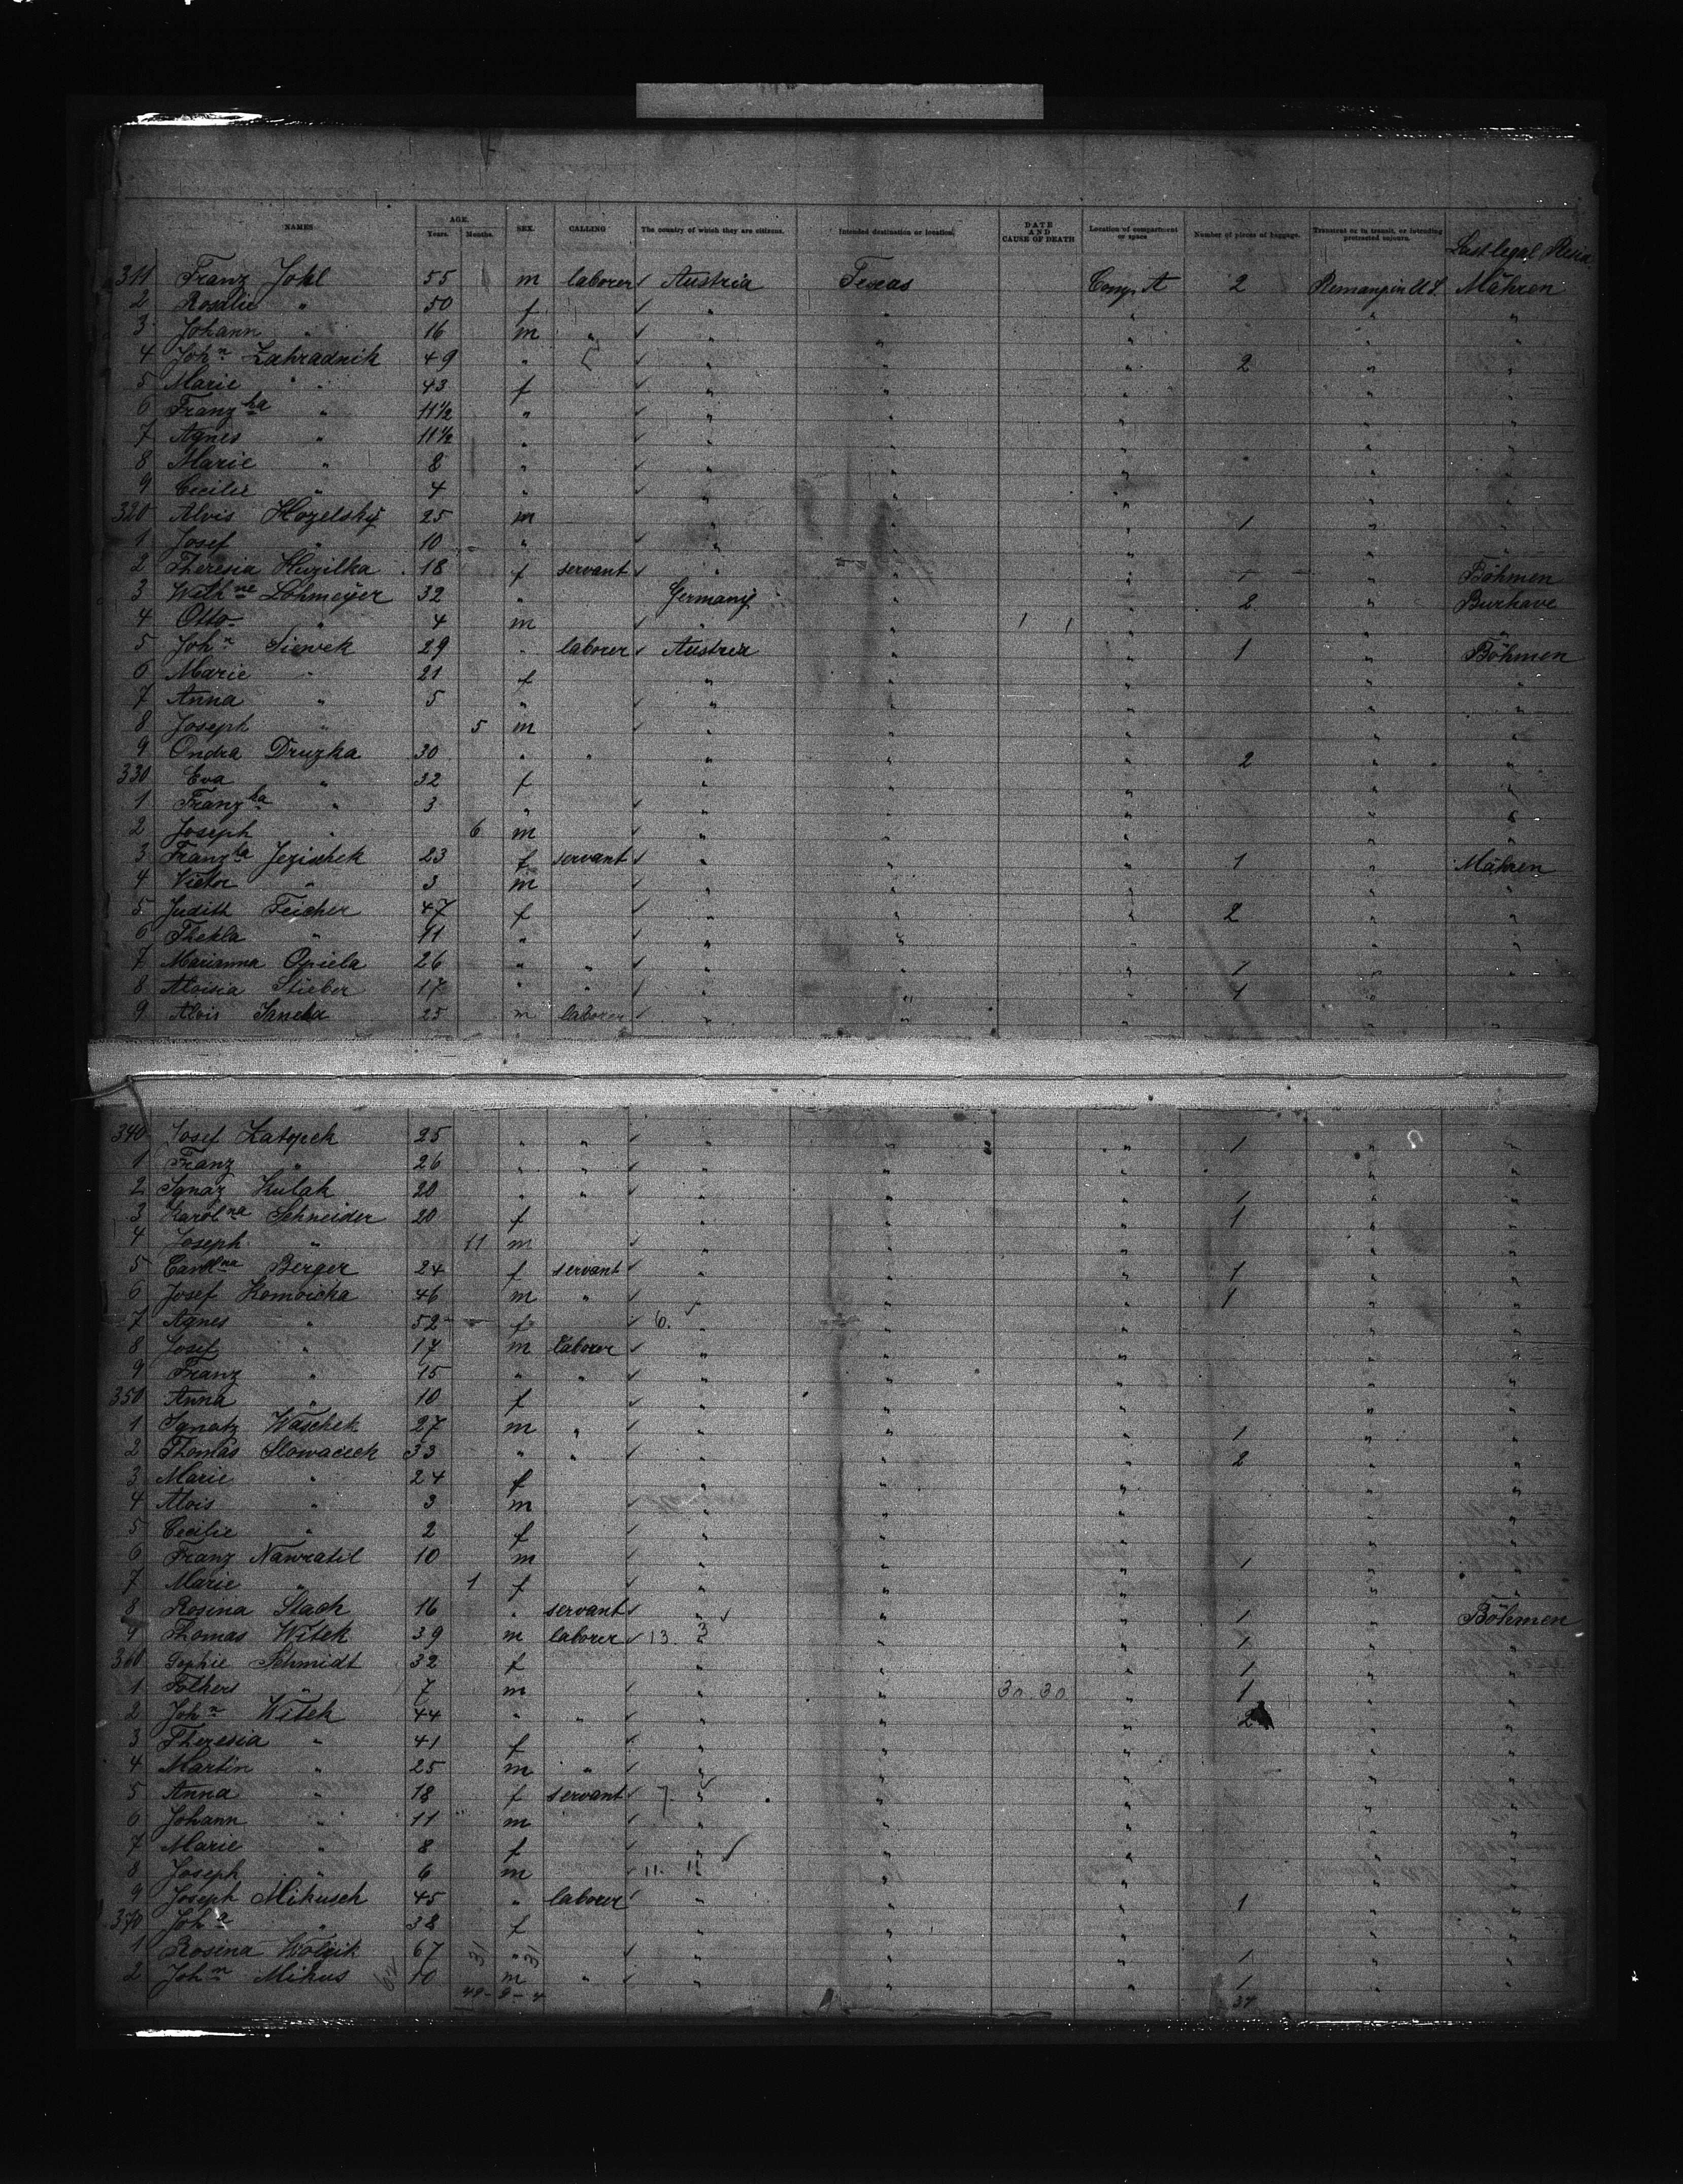 NAMES AGE. Years. Months. SEX. CALLING The country of which they are citizens. Intended destination or location. DATE AND CAUSE OF DEATH Location of compartment or space Number of pieces of baggage. Transient or in transit, or intending protracted sojourn. Last legal Resid.
311 Franz Johl 55 m laborer Austria Texas Comp. A 2 Mähren
2 Rosalie " 50 f " " " " "
3 Johann " 16 m " " " " " "
4 Joh<sup>n</sup> Zahradnik 49 " " " " 2 " "
5 Marie " 43 f " " " " "
6 Franz<sup>ka</sup> " 11½ " " " " " "
7 Agnes " 11½ " " " " " "
8 Marie " 8 " " " " " "
9 Cecilie " 4 " " " " " "
320 Alois 25 m " " " 1 " "
1 Josef " 10 " " " " " "
2 Theresia 18 f servant " " " 1 " Böhmen
3 Wilh<sup>ne</sup> Lohmeyer 32 " Germany " " 2 " Burhave
4 Otto " 4 m " " 1 1 " " "
5 Joh<sup>n</sup> 29 " laborer Austria " " 1 " Böhmen
6 Marie " 21 f " " " " "
7 Anna " 5 " " " " " "
8 Joseph " 5 m " " " " "
9 Ondra Druzka 30 " " " " " 2 " "
330 Eva " 32 f " " " " "
1 Franz<sup>ka</sup> " 3 " " " " " "
2 Joseph " 6 m " " " " "
3 Franz<sup>ka</sup> Jezischek 23 f servant " " " 1 " Mähren
4 Victor " 3 m " " " " "
5 Judith Teicher 47 f " " " 2 " "
6 Thekla " 11 " " " " " "
7 Marianna Opiela 26 " " " " " 1 " "
8 Aloisia Stieber 17 " " " " " 1 " "
9 Alois 25 m laborer " " " " "
340 Josef Zatopek 25 " " " " 1 " "
1 Franz " 26 " " " " " " "
2 Ignaz Kulak 20 " " " " " 1 " "
3 Karol<sup>na</sup> Schneider 20 f " " " 1 " "
4 Joseph " 11 m " " " " "
5 Carol<sup>na</sup> Berger 24 f servant " " " 1 " "
6 Josef 46 m " " " " 1 " "
7 Agnes " 52 f 6. " " " " "
8 Josef " 17 m laborer " " " " "
9 Franz " 15 " " " " " " "
350 Anna " 10 f " " " " "
1 Ignatz Waschek 27 m " " " " 1 " "
2 Thomas Slowacek 33 " " " " " 2 " "
3 Marie " 24 f " " " " "
4 Alois " 3 m " " " " "
5 Cecilie " 2 f " " " " "
6 Franz Nawratil 10 m " " " 1 " "
7 Marie " 1 f " " " " "
8 Rosina Stach 16 " servant " " " 1 " Böhmen
9 Thomas Witek 39 m laborer 13. 3 " " 1 " "
360 Sophie Schmidt 32 f " " " 1 " "
1 " 7 m " " 30 30 " 1 " "
2 Joh<sup>n</sup> Witek 44 " " " " " 2 " "
3 Theresia " 41 f " " " " "
4 Martin " 25 m " " " " " "
5 Anna " 18 f servant 7 " " " " "
6 Johann " 11 m " " " " "
7 Marie " 8 f " " " " "
8 Joseph " 6 m 11. 11 " " " "
9 Joseph Mikusch 45 " laborer " " " 1 " "
370 Joh<sup>a</sup> " 38 f " " " " "
1 Rosina 67 " " " " 1 " "
2 Joh<sup>n</sup> Mikus 10 m " " " " 1 " "
34